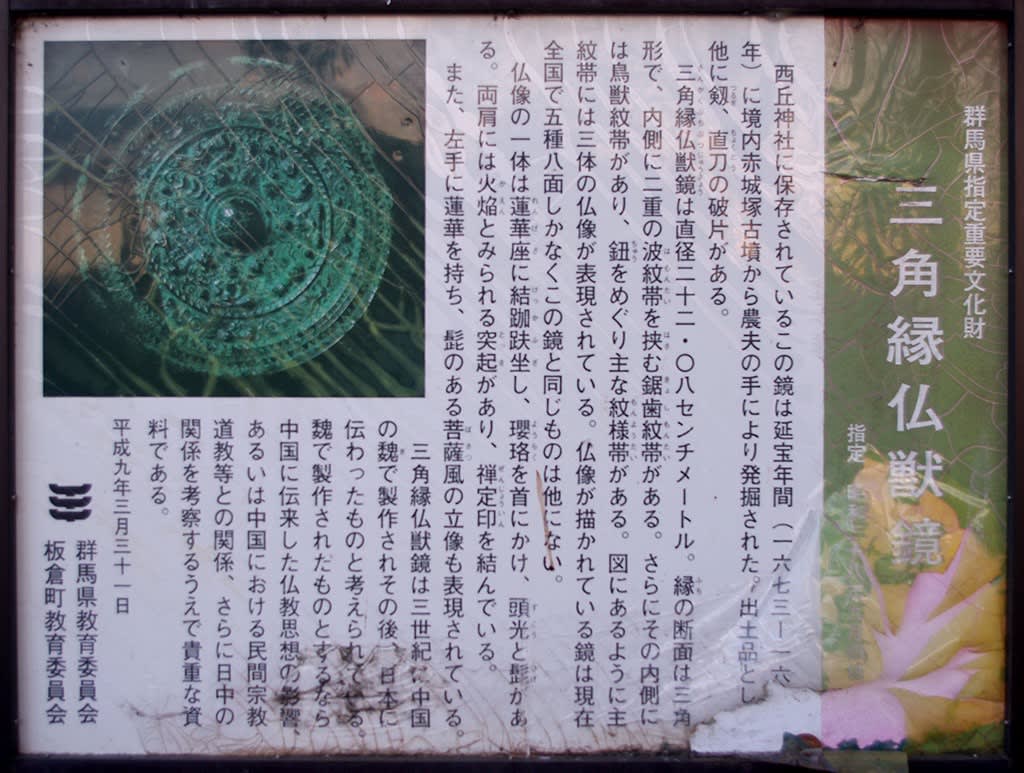 群馬県指定重要文化財
三角縁仏獣鏡
指定
西丘神社に保存されているこの鏡は延宝年間（一六七三ー一六
年）に境内赤城塚古墳から農夫の手により発掘された。出土品とし
他に剱、直刀の破片がある。
三角縁仏獣鏡は直径二十二・〇八センチメートル。縁の断面は三角
形で、内側に二重の波紋帯を挟む鋸歯紋帯がある。さらにその内側に
は鳥獣紋帯があり、鈕をめぐり主な紋様帯がある。図にあるように主
紋帯には三体の仏像が表現されている。仏像が描かれている鏡は現在
全国で五種八面しかなくこの鏡と同じものは他にない。
仏像の一体は蓮華座に結跏趺坐し、瓔珞を首にかけ、頭光と髭があ
る。両肩には火焔とみられる突起があり、禅定印を結んでいる。
また、左手に蓮華を持ち、髭のある菩薩風の立像も表現されている。
三角縁仏獣鏡は三世紀に中国
の魏で製作されその後、日本に
伝わったものと考えられている。
魏で製作されたものとするなら
中国に伝来した仏教思想の影響、
あるいは中国における民間宗教
道教等との関係、さらに日中の
関係を考察するうえで貴重な資
料である。
平成九年三月三十一日
群馬県教育委員会
板倉町教育委員会